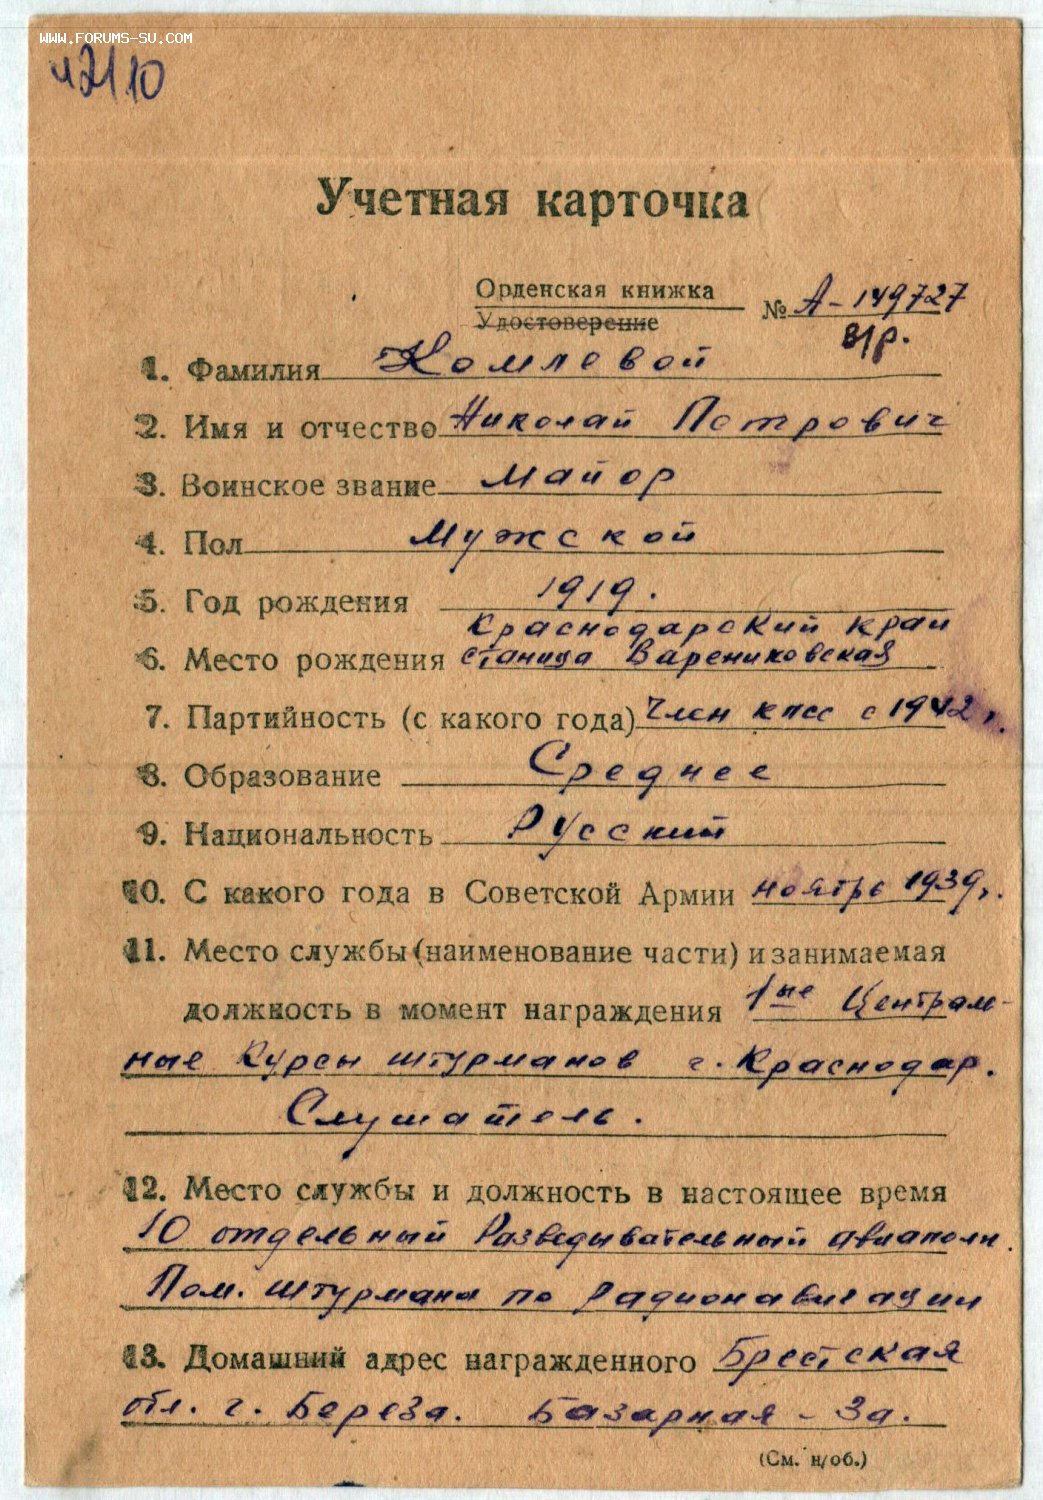 WWW.FORUMS-SU.COM
Учетная карточка
Орденская книжка
Удостоверение
№ А-149727
в/р.
1. Фамилия Комлевой
2. Имя и отчество Николай Петрович
3. Воинское звание Майор
4. Пол Мужской
5. Год рождения 1919.
Краснодарский край
6. Место рождения станица Варениковская
7. Партийность (с какого года) Член кпсс с 1942г.
8. Образование Среднее
9. Национальность Русский
10. С какого года в Советской Армии ноябрь 1939г.
11. Место службы (наименование части) и занимаемая
должность в момент награждения 1ые Централь-
ные Курсы штурманов г. Краснодар.
Слушатель.
12. Место службы и должность в настоящее время
10 отдельный Разведывательный авиаполк.
Пом. штурмана по Радионавигации
13. Домашний адрес награжденного Брестская
обл. г. Береза. Базарная - 3а.
(См. н/об.)